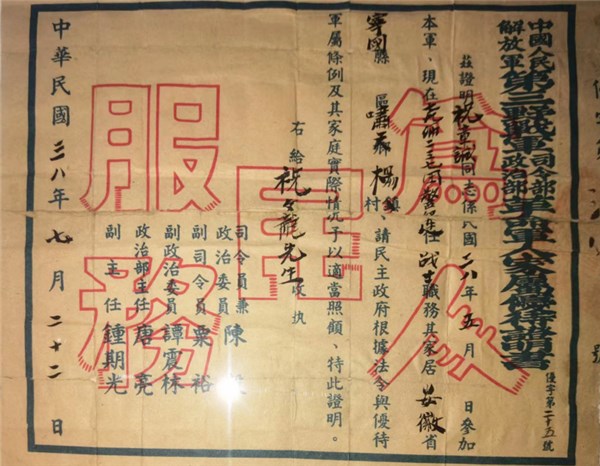 中國人民
解放軍
第三野戰軍
司令部
政治部
革命軍人家屬優待證明書
優字第二十五號
茲證明祝烹誠同志係民國三八年五月 日參加
本軍、現在 任战士職務其家居安徽省
寧國縣 區 鄉楊鎮村、請民主政府根據法令與優待
軍屬條例及其家庭實際情况予以適當照顧、特此證明。
右給祝 龍先生收执
司令員兼
政治委員 陳
副司令員 粟裕
副政治委員 譚震林
政治部主任 唐亮
副主任 鍾期光
中華民國三八年七月二十二日
為人
民
服務
號